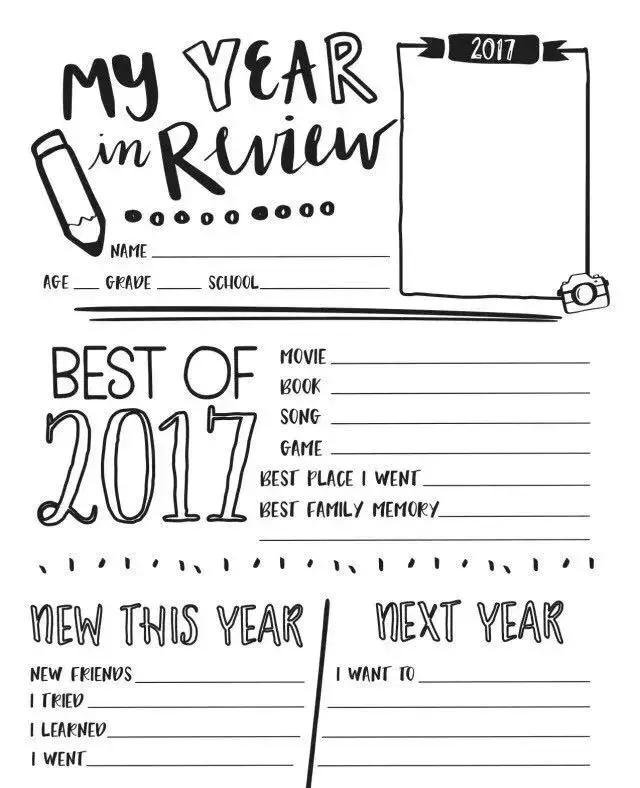 MY YEAR
in Review
2017
NAME
AGE GRADE SCHOOL
BEST OF
2017
MOVIE
BOOK
SONG
GAME
BEST PLACE I WENT
BEST FAMILY MEMORY
NEW THIS YEAR
NEW FRIENDS
I TRIED
I LEARNED
I WENT
NEXT YEAR
I WANT TO